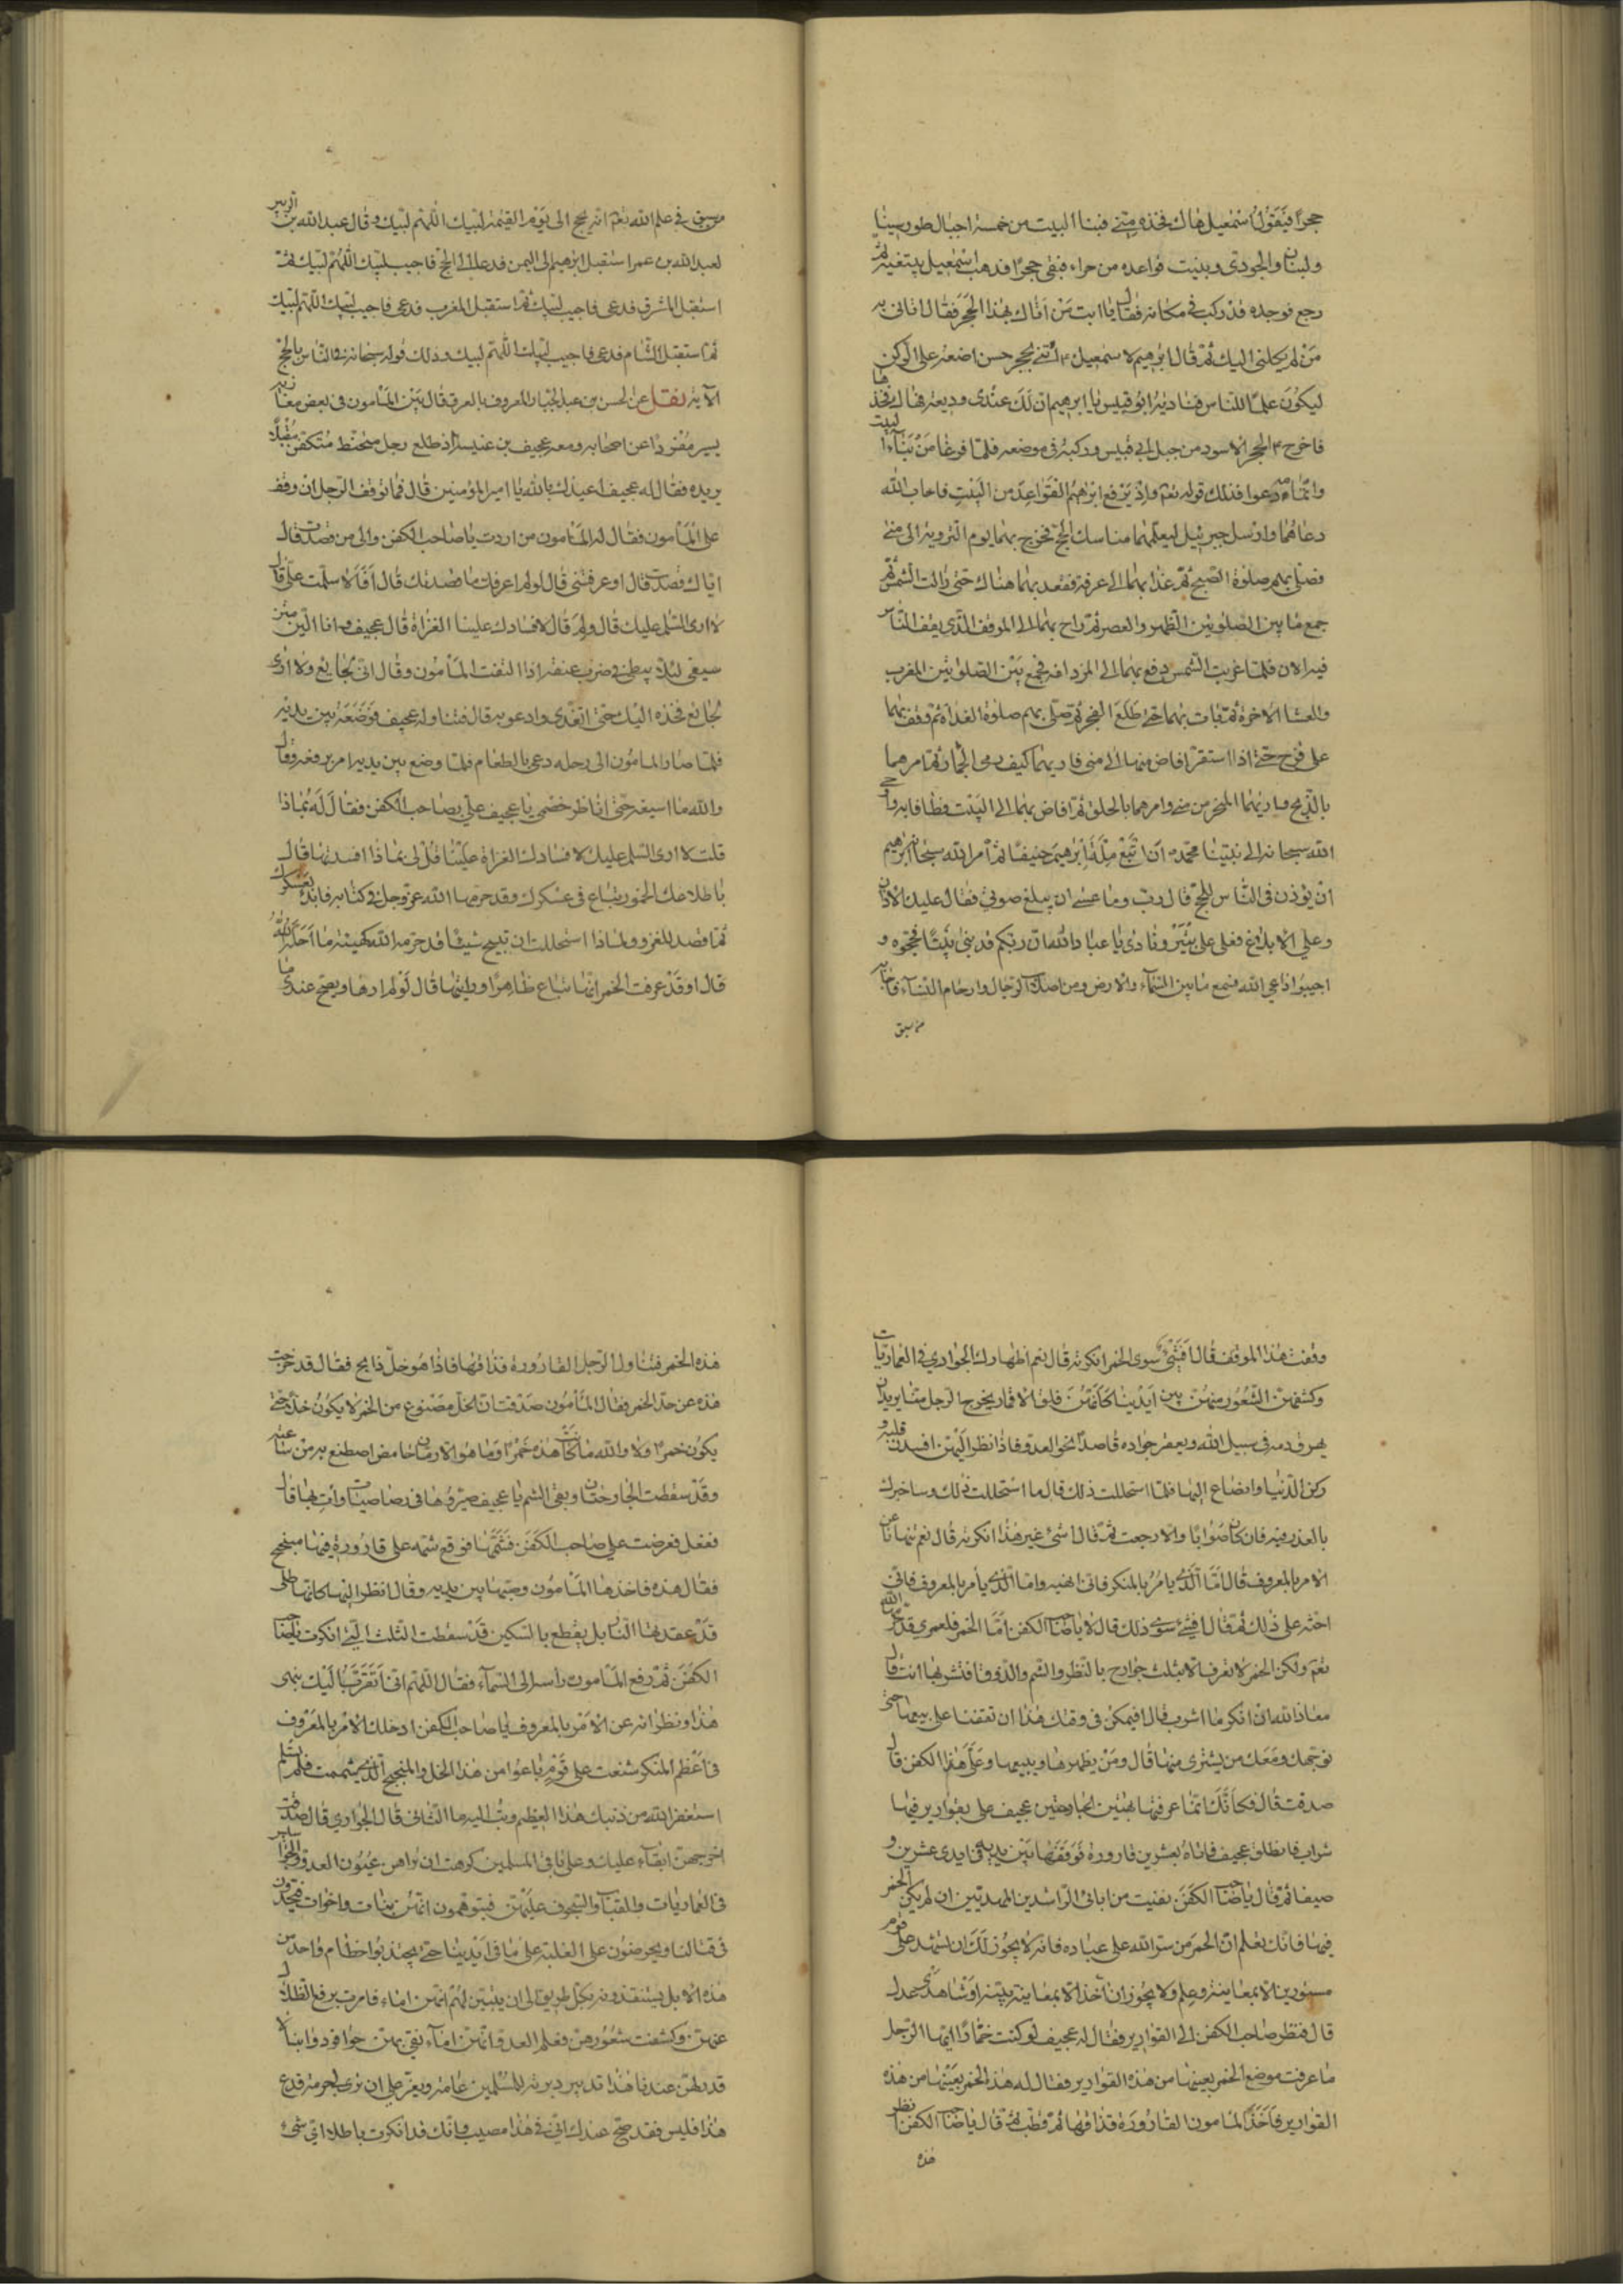 حجرًا فيقول اسمعيل هاك فخذه مني فبنا البيت من خمسة اجبال طور سينا
ولبنان والجودي وبنيت قواعده من حراء فبقي حجرًا فذهب اسمعيل يبتغيه ثم
رجع فوجده قد ركب في مكانه فقال يا ابت من اتاك بهذا الحجر فقال اتاني به
من لم يكلني اليك ثم قال ابرهيم لاسمعيل ائتني بحجر حسن اضعه على الركن
ليكون علمًا للناس فناديه ابو قبيس يا ابرهيم ان لك عندي وديعة فهاك فخذها
فاخرج الحجر الاسود من جبل ابي قبيس وركبه في موضعه فلما فرغا من بناء البيت
واتماه دعوا فذلك قوله تعم واذ يرفع ابرهيم القواعد من البيت فاجاب الله
دعاهما وارسل جبرئيل ليعلمهما مناسك الحج فخرج بهما يوم التروية الى منى
فصلى بهم صلوة الصبح ثم غدا بهما الى عرفة فقعد بهما هناك حتى زالت الشمس ثم
جمع ما بين الصلوتين الظهر والعصر ثم راح بهما الى الموقف الذي يقف الناس
فيه الان فلما غربت الشمس دفع بهما الى المزدلفه فجمع بين الصلوتين المغرب
والعشا الاخرة ثم بات بهما حتى طلع الفجر ثم صلى بهم صلوة الغداة ثم وقف بهما
على قزح حتى اذا استقر افاض منها الى منى فاريهما كيف رمى الجمار ثم امرهما
بالذبح واريهما المنحر من منى وامرهما بالحلق ثم افاض بهما الى البيت فطافا به واوحى
الله سبحانه الى نبينا محمد ان اتبع ملة ابرهيم حنيفًا ثم امر الله سبحانه ابرهيم
ان يؤذن في الناس للحج قال رب وما عسى ان يبلغ صوتي فقال عليك الاذان
وعلي الابلاغ فعلى على ثبير ونادى يا عباد الله ان ربكم قد بنى بيتًا فحجوه و
اجيبوا داعي الله فسمع ما بين السماء والارض ومن اصلاب الرجال وارحام النساء فاجابه
من سبق
من سبق في علم الله تعم انه يحج الى يوم القيمة لبيك اللهم لبيك وقال عبد الله بن الزبير
لعبد الله بن عمر استقبل ابرهيم الى اليمن فدعا الى الحج فاجيب لبيك اللهم لبيك ثم
استقبل المشرق فدعى فاجيب لبيك ثم استقبل المغرب فدعى فاجيب لبيك اللهم لبيك
ثم استقبل الشام فدعى فاجيب لبيك اللهم لبيك وذلك قوله سبحانه في الناس بالحج
الآية نقل عن الحسن بن عبد الجبار المعروف بالعرق قال بين المامون في بعض مغازيه
يسير مفردًا عن اصحابه ومعه عجيف بن عنبسة اذ طلع رجل متحنط متكفن مقبلًا
يريده فقال له عجيف اعيذك بالله يا امير المؤمنين قال فما توقف الرجل ان وقف
على المأمون فقال له المأمون من اردت يا صاحب الكفن والى من قصدت قال
اياك قصدت قال او عرفتني قال لو لم اعرفك ما قصدتك قال افلا سلمت علي قال
لا ارى السلم عليك قال ولم قال لافسادك علينا الغزاة قال عجيف وانا الين مسن
سيفي لئلا يبطئ وضرب عنقه اذا التفت المأمون وقال اني جايع ولا ارى
جايع فخذه اليك حتى اتغدى وادعو به قال فتناوله عجيف فوضعه بين يديه
فلما صار المامون الى رحله دعى بالطعام فلما وضع بين يديه امر برفعه وقال
والله ما اسيغه حتى اناظر خصمي يا عجيف علي بصاحب الكفن فقال له بماذا
قلت لا ارى السلم عليك لافسادك الغزاة علينا قل لي بماذا افسدتها قال
باطلاعك الخمور يباع في عسكرك وقد حرمها الله عز وجل في كتابه فابدء بعسكرك
ثم اقصد للغزو ولماذا استحللت ان تبيح شيئًا قد حرمه الله كهيئة ما احله الله
قال او قد عرفت الخمر انها تباع ظاهرًا ورايتها قال لو لم ارها ويصح عندي ما
وقفت هذا الموقف قال افشئ سوى الخمر انكرته قال نعم اظهارك الجواري في العماريات
وكشفهن الشعور منهن بين ايدينا كانهن فلق الاقمار يخرج الرجل منا يريد ان
يهرق دمه في سبيل الله ويعقر جواده قاصدًا نحو العدو فاذا نظر اليهن افسدن قلبه و
ركن الدنيا وانضاع اليها فلم استحللت ذلك قال ما استحللت ذلك وساخبرك
بالعذر فيه فان كان صوابًا والا رجعت ثم قال اشئ غير هذا انكرته قال نعم نهيتنا عن
الامر بالمعروف قال اما الذي يامر بالمنكر فاني انهيه واما الذي يأمر بالمعروف فاني
احثه على ذلك ثم قال افشئ سوى ذلك قال لا يا صاحب الكفن اما الخمر فلعمري قد حرمها الله
تعم ولكن الخمر لا تعرف الا بثلث جوارح بالنظر والشم والذوق افتشربها انت قال
معاذ الله ان انكر ما اشرب قال افيمكن في وقتك هذا ان تقفنا على بيعها حتى
نوجهك ومعك من يشترى منها قال ومن يظهرها ويبيعها وعلي هذا الكفن قال
صدقت قال فكانك انما عرفتها بهتين الجارحتين عجيف علي بقوارير فيها
شراب فانطلق عجيف فاتاه بعشرين قارورة فوقفها بين يديه في ايدي عشرين و
صيفا ثم قال يا صاحب الكفن نفيت من ابائي الراشدين المهديين ان لم يكن الخمر
فيها فانك تعلم ان الخمر من ستر الله على عباده فانه لا يجوز لك ان تشهد على قوم
مستورين الا بمعاينة وعلم ولا يجوز ان اخذ الا بمعاينة بينة او شاهدي عدل
قال فنظر صاحب الكفن الى القوارير فقال له عجيف لو كنت خمارًا ايها الرجل
ما عرفت موضع الخمر بعينها من هذه القوارير فقال له هذا الخمر بعينها من هذه
القوارير فاخذ المامون القارورة فذاقها ثم قطب ثم قال يا صاحب الكفن انظر
هذه
هذه الخمر فتناول الرجل القارورة فذاقها فاذا هو خل ذابح فقال قد خرجت
هذه عن حد الخمر فقال المأمون صدقت ان الخل مصنوع من الخمر لا يكون خلًا حتى
يكون خمرًا ولا والله ما كانت هذه خمرًا وما هو الا رمان حامض اصطنع به من ساعته
وقد سقطت الجارحتان وبقى الشم يا عجيف صيروها في رصاصيات وأت بها قال
ففعل فعرضت على صاحب الكفن فشمها فوقع شمه على قارورة فيها مبختج
فقال هذه فاخذها المأمون وصبها بين يديه وقال انظر اليها كانها طلى
قد عقدتها النار بل يقطع بالسكين قد سقطت الثلث التي انكرت يا صاحب
الكفن ثم رفع المأمون راسه الى السماء فقال اللهم اني اتقرب اليك بنهى
هذا ونظرائه عن الامر بالمعروف يا صاحب الكفن ادخلك الامر بالمعروف
في اعظم المنكر شنعت على قوم باعوا من هذا الخل والمبختج الذي شممت فلم يسلم
استغفر الله من ذنبك هذا العظيم وتب اليه ما الثاني قال الجواري قال صدقت
اخرجهن ابقاء عليك وعلى باقي المسلمين كرهت ان تراهن عيون العدو والجواسيس
في العماريات والقباب والسجوف عليهن فيتوهمون انهن بنات واخوات فيجدون
في قتالنا ويحرضون على الغلبة على ما في ايدينا حتى يجتذبوا خطام واحد من
هذه الابل يستنقذونه بكل طريق الى ان يتبين لهم انهن اماء فامرت برفع الظلال
عنهن وكشفت شعورهن فعلم العدو انهن اماء نقي بهن حوافر دوابنا لا
قدر لهن عندنا هذا تدبير دبرته للمسلمين عامة ويعز علي ان ترى لي حرمة فدع
هذا فليس فقد صح عندك اني في هذا مصيب وانك قد انكرت باطلا اي شئ